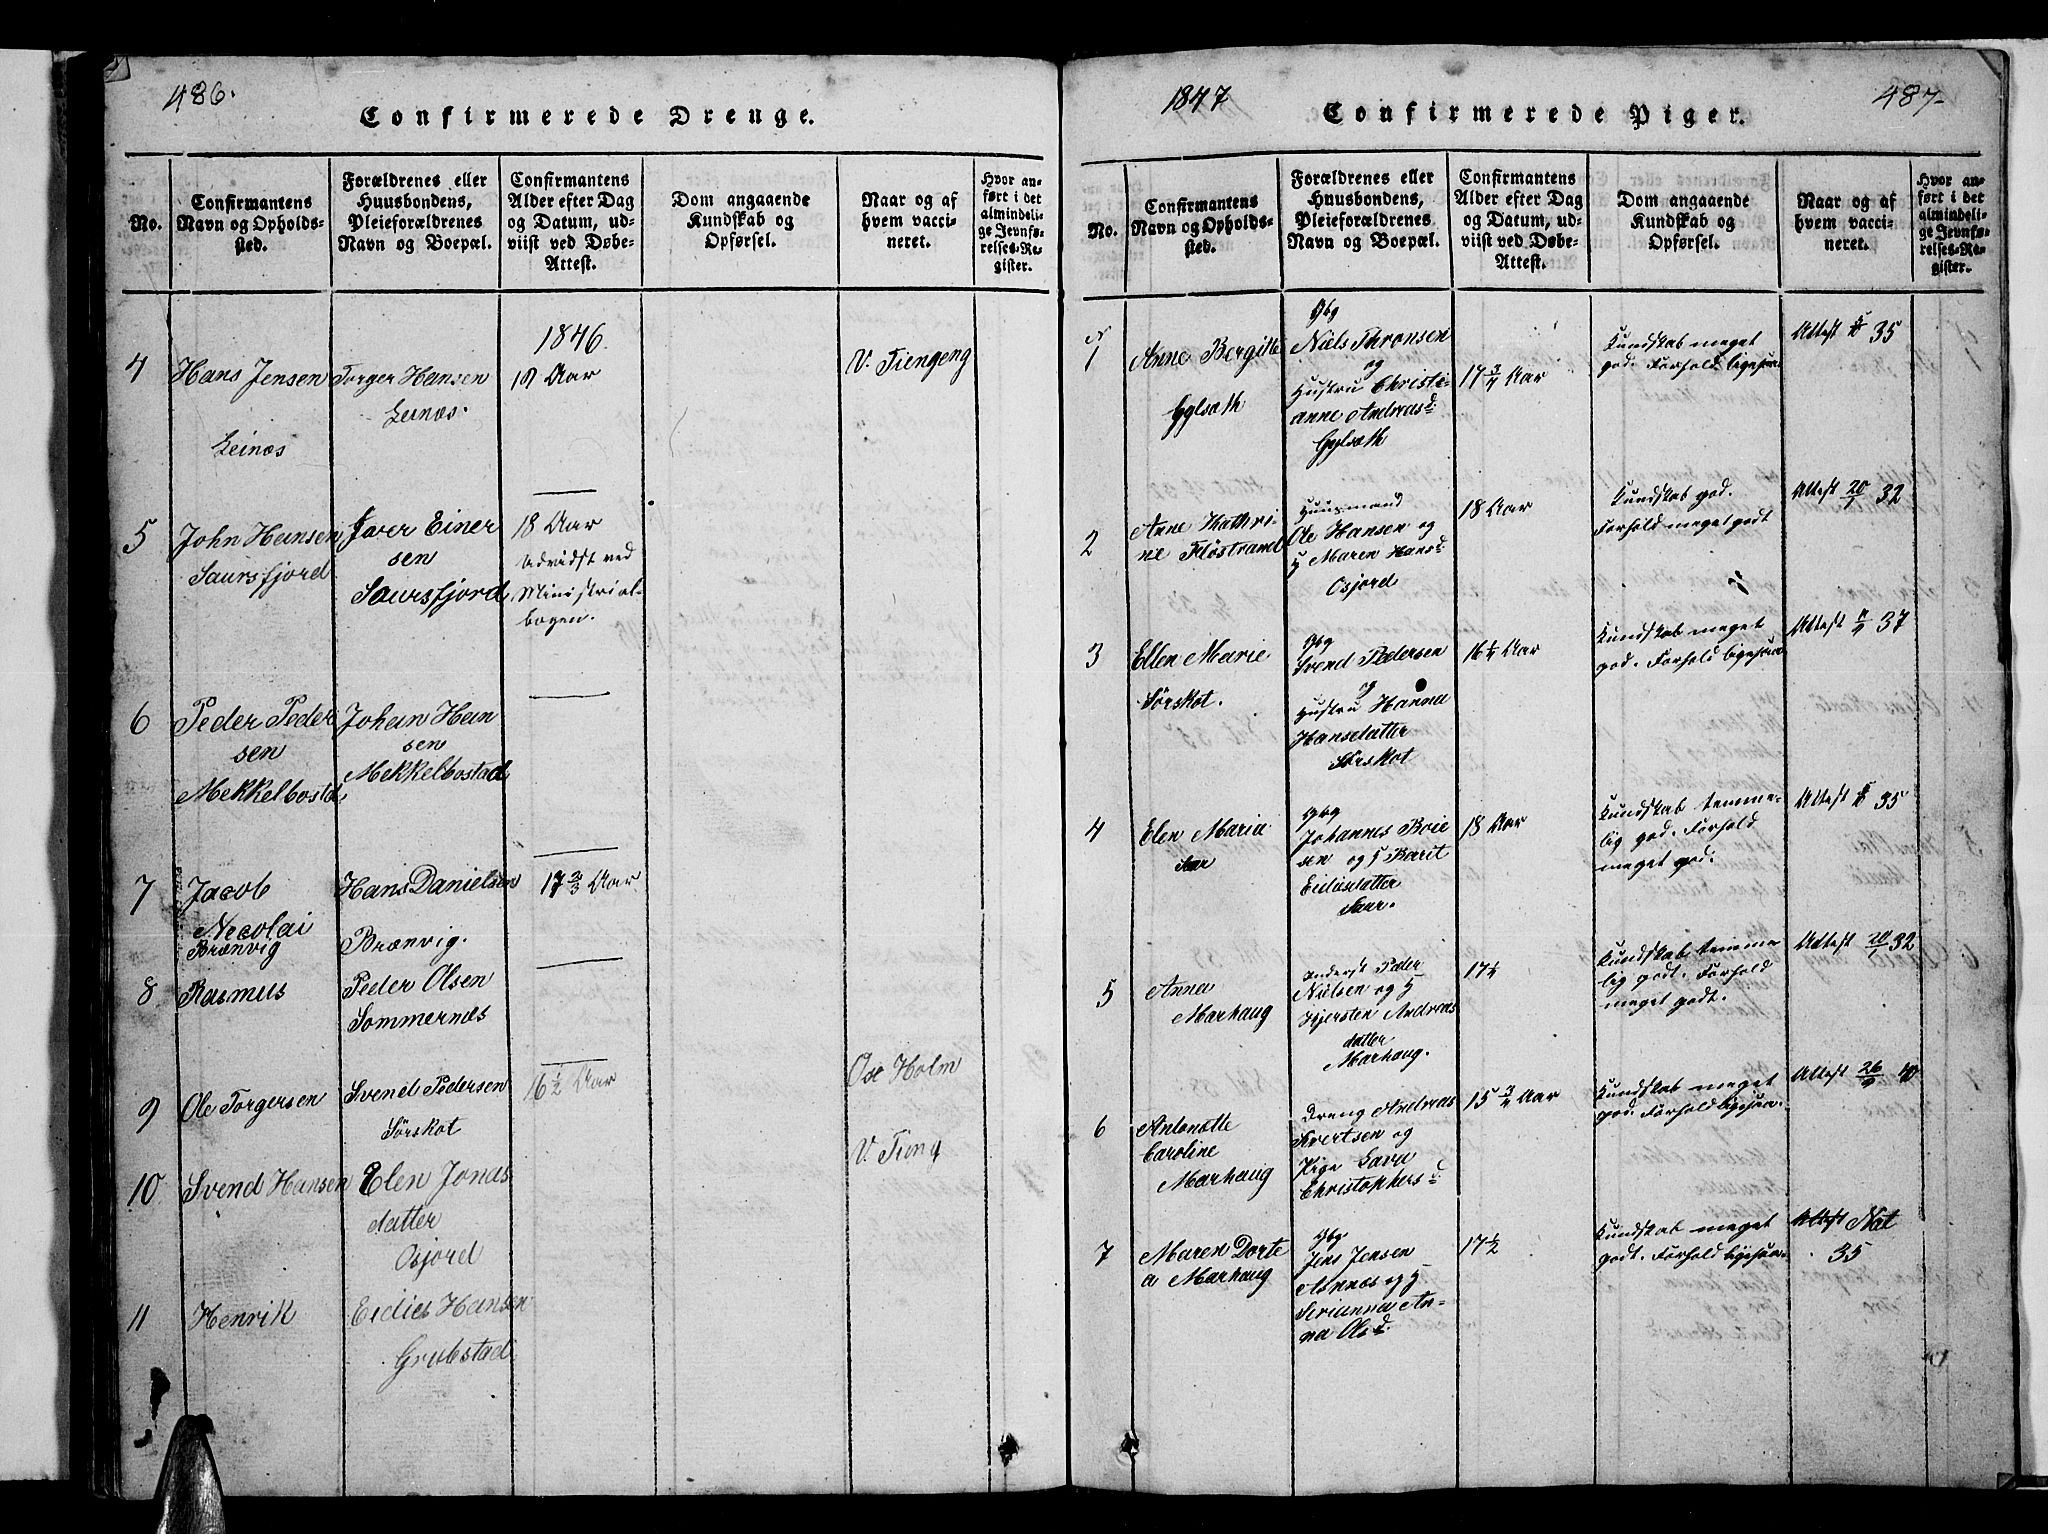 486.
Confirmerede Drenge.
No.
Confirmantens
Navn og Opholds-
sted.
Forældrenes eller
Huusbondens,
Pleieforældrenes
Navn og Boepæl.
Confirmantens
Alder efter Dag
og Datum, ud-
viist ved Døbe-
Attest.
Dom angaaende
Kundskab og
Opførsel.
Naar og af
hvem vacci-
neret.
Hvor an-
ført i det
almindeli-
ge Jevnfø-
relses-Re-
gister.
1846.
4
Hans Jensen
Leinæs
Torger Hansen
Leinæs.
Aar
V. Tiengeng
5
John Hansen
Saursfjord
Iver Einer
sen
Saursfjord
18 Aar
Udvidst ved
Ministrial-
bogen.
6
Peder Peder
sen
Mekkelbostd
Johan Han
sen
Mekkelbostad
7
Jacob
Necolai
Brænvig
Hans Danielsen
Brænvig.
17 2/3 Aar
8
Rasmus
Peder Olsen
Sommernæs
9
Ole Torgersen
Svend Pedersen
Sørskot
16 1/2 Aar
Ose Holm
10
Svend Hansen
Elen Jonas
datter
Osjord
V. Tieng
11
Henrik
Eidies Hansen
Grubstad
1847
Confirmerede Piger.
487-
No.
Confirmantens
Navn og Opholds-
sted.
Forældrenes eller
Huusbondens,
Pleieforældrenes
Navn og Boepæl.
Confirmantens
Alder efter Dag
og Datum, ud-
viist ved Døbe-
Attest.
Dom angaaende
Kundskab og
Opførsel.
Naar og af
hvem vacci-
neret.
Hvor an-
ført i det
almindeli-
ge Jevnfø-
relses-Re-
gister.
1
Anne Bergitte
Gylsæth
Gbg
Niels Thronsen
og
Hustru Christi-
anne Andreasd:
Gylsæth
17 3/4 Aar
Kundskab meget
god. Forhold ligesaa
Attest 35
2
Anne Kathri-
ne Fløstrand
Huusmand
Ole Hansen og
H Maren Hansd:
Osjord
18 Aar
Kundskab god.
Forhold meget godt
Attest 20/7 32
3
Ellen Marie
Sørskot.
Gbg
Svend Pedersen
og
Hustru Hanna
Hansdatter
Sørskot
16 1/4 Aar
Kundskab meget
god. Forhold ligesaa
Attest 37
4
Elen Maria
Gbg
Johannes Boie
sen og H Barit
Eidisdatter
Saur.
18 Aar
Kundskab temme-
lig god. Forhold
meget god.
Attest 35
5
Anna
Marhaug
Inderst Peder
Nielsen og H
Kjersten Andreas
datter
Marhaug.
17 1/2
Kundskab temme
lig godt. Forhold
meget godt.
Attest 20/7 32
6
Antonette
Caroline
Marhaug
Dreng Andreas
Ivertsen og
Pige Lava
Christophersd:
15 3/4 Aar
Kundskab meget
god. Forhold ligesaa.
Attest 26/9 40
7
Maren Dorte
a Marhaug
Gbg
Jens Jensen
Asnnæs og H
Serianna An-
na Olsd:
17 1/2
Kundskab meget
godt. Forhold ligesaa.
Attest Nat
35